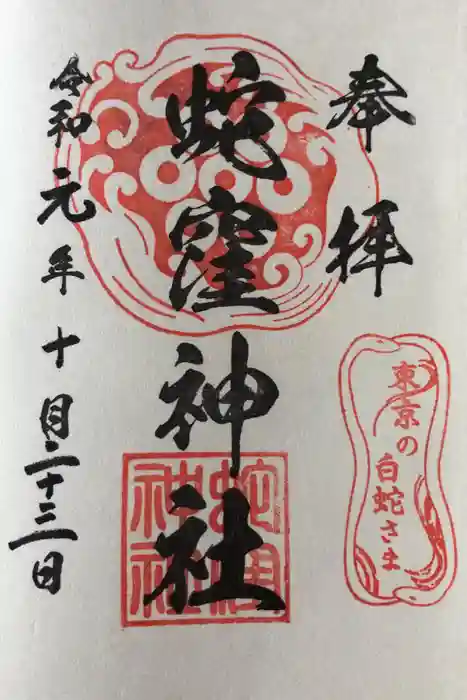 奉拝
東京の白蛇さま
蛇窪神社
蛇窪
神社
令和元年十月二十三日